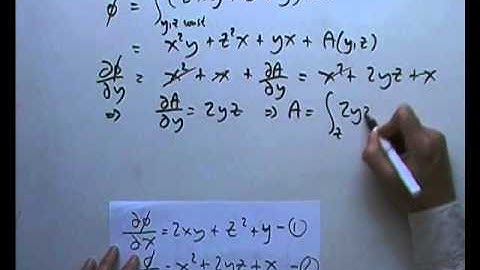 ϕ = ∫
y,z const
= x²y + z²x + yx + A(y,z)
∂ϕ/∂y = x² + x + ∂A/∂y = x² + 2yz + x
⇒ ∂A/∂y = 2yz ⇒ A = ∫z 2yz
∂ϕ/∂x = 2xy + z² + y - ①
ϕ = x² + 2yz + x - ②